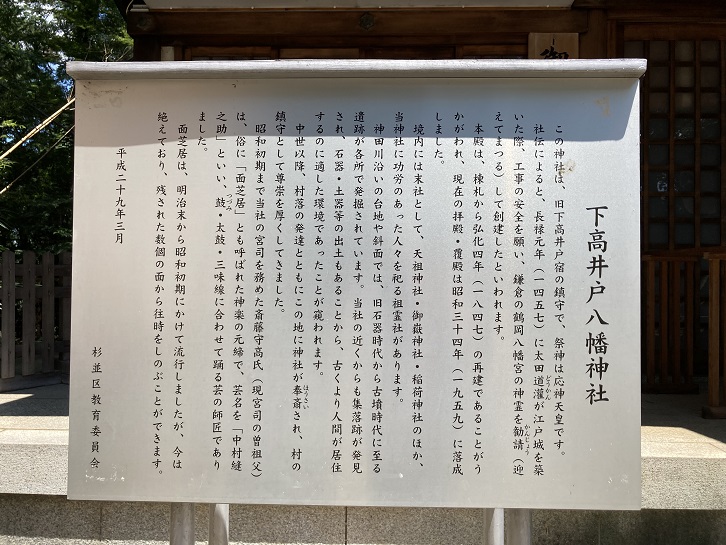 下高井戸八幡神社
この神社は、旧下高井戸宿の鎮守で、祭神は応神天皇です。
社伝によると、長禄元年(一四五七)に太田道灌が江戸城を築
どうかん
いた際、工事の安全を願い、鎌倉の鶴岡八幡宮の神霊を勧請(迎
かんじょう
えてまつる)して創建したといわれます。
本殿は、棟札から弘化四年(一八四七)の再建であることがう
かがわれ、現在の拝殿・覆殿は昭和三十四年(一九五九)に落成
しました。
境内には末社として、天祖神社・御嶽神社・稲荷神社のほか、
当神社に功労のあった人々を祀る祖霊社があります。
神田川沿いの台地や斜面では、旧石器時代から古墳時代に至る
遺跡が各所で発掘されています。当社の近くからも集落跡が発見
され、石器・土器等の出土もあることから、古くより人間が居住
するのに適した環境であったことが窺われます。
中世以降、村落の発達とともにこの地に神社が奉斎され、村の
ほうさい
鎮守として尊崇を厚くしてきました。
昭和初期まで当社の宮司を務めた斎藤守高氏(現宮司の曽祖父)
は、俗に「面芝居」とも呼ばれた神楽の元締で、芸名を「中村縫
之助」といい、鼓・太鼓・三味線に合わせて踊る芸の師匠であり
つづみ
ました。
面芝居は、明治末から昭和初期にかけて流行しましたが、今は
絶えており、残された数個の面から往時をしのぶことができます。
平成二十九年三月
杉並区教育委員会
御